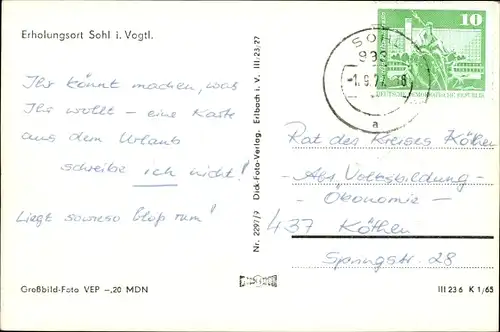 Erholungsort Sohl i. Vogtl.
Ihr könnt machen, was
Ihr wollt – eine Karte
aus dem Urlaub
schreibe ich nicht!
Liegt sowieso bloß rum!
Großbild-Foto VEP –,20 MDN
Nr. 2297/9 Dick-Foto-Verlag, Erlbach i. V. III/23/27
SOHL
993
-1.9.77
18
a
10
DEUTSCHE DEMOKRATISCHE REPUBLIK
Rat des Kreises Köthen
- Abt. Volksbildung -
- Ökonomie -
437 Köthen
Springstr. 28
III 23 6 K 1/65